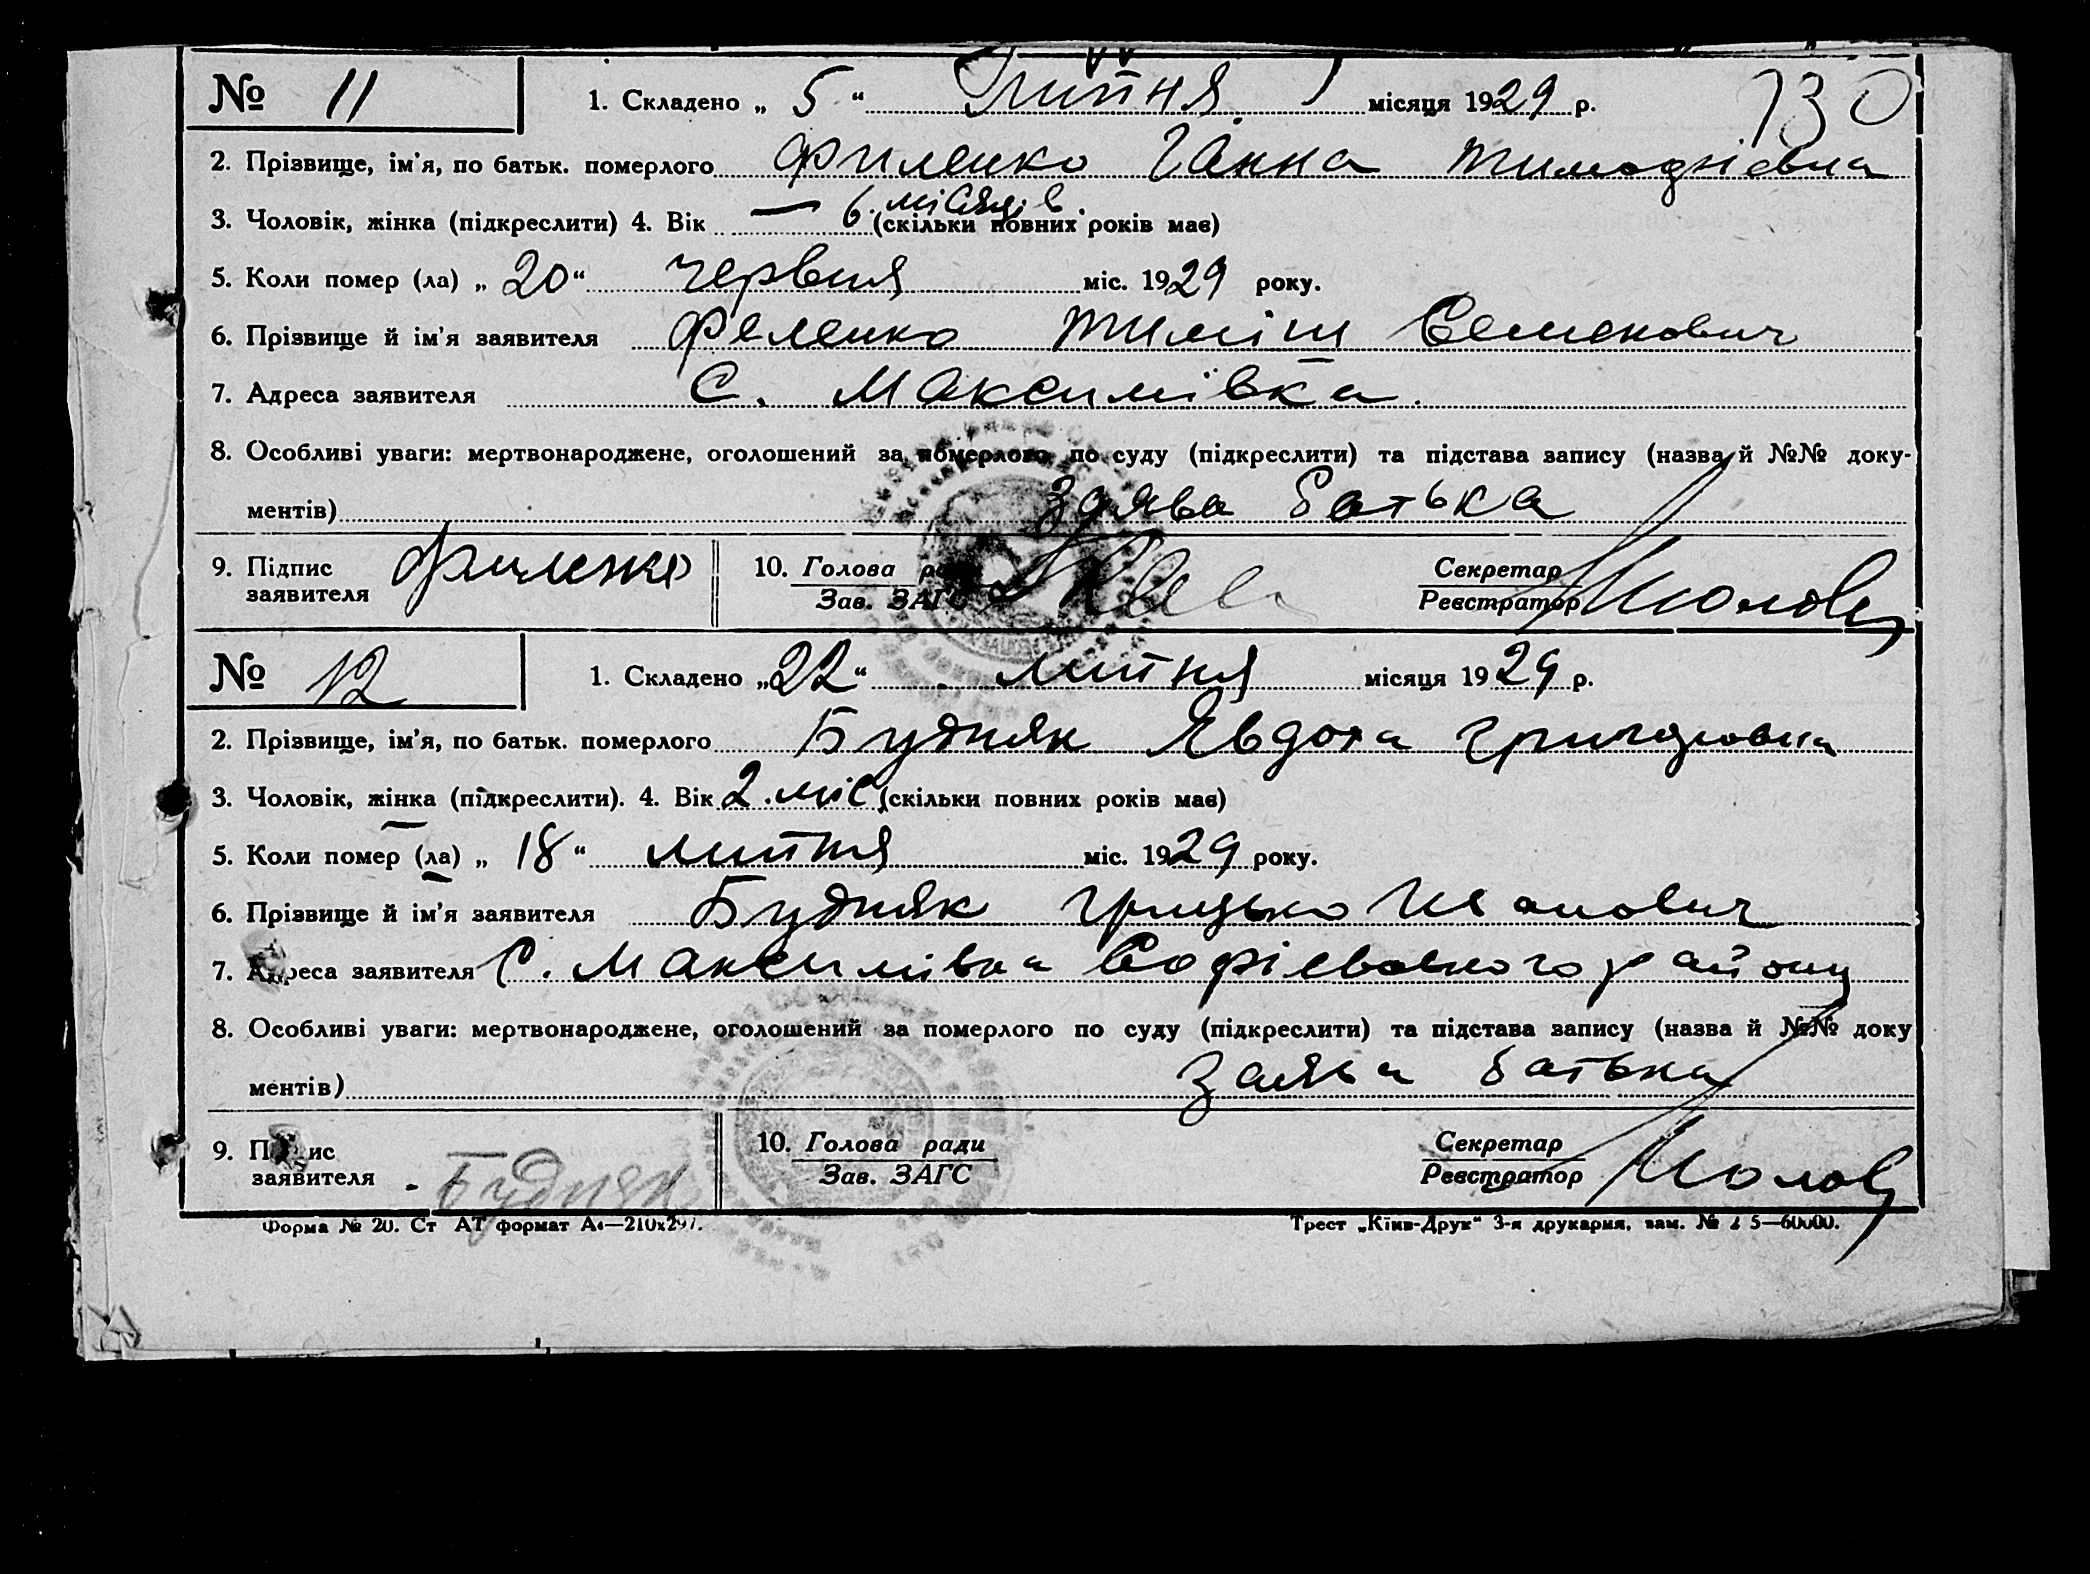 № 11 1. Складено „ 5 “ Липня місяця 1929 р. 130
2. Прізвище, ім'я, по батьк. померлого Филенко Ганна Тимофіевна
3. Чоловік, жінка (підкреслити) 4. Вік — 6 місяців (скільки повних років має)
5. Коли помер (ла) „ 20 “ червня міс. 1929 року.
6. Прізвище й ім'я заявителя Феленко Тиміш Семенович
7. Адреса заявителя С. Максимівка.
8. Особливі уваги: мертвонароджене, оголошений за померлого по суду (підкреслити) та підстава запису (назва й №№ доку-
ментів) Заява батька
9. Підпис заявителя Филенко 10. Голова ради Секретар
Зав. ЗАГС Реєстратор
№ 12 1. Складено „ 22 “ липня місяця 1929 р.
2. Прізвище, ім'я, по батьк. померлого Будняк Явдоха Григоровна
3. Чоловік, жінка (підкреслити). 4. Вік 2 міс (скільки повних років має)
5. Коли помер (ла) „ 18 “ липня міс. 1929 року.
6. Прізвище й ім'я заявителя Будняк Грицько Иванович
7. Адреса заявителя С. Максимівка Софієвського району
8. Особливі уваги: мертвонароджене, оголошений за померлого по суду (підкреслити) та підстава запису (назва й №№ доку
ментів) Заява батька
9. Підпис заявителя Будняк 10. Голова ради Секретар
Зав. ЗАГС Реєстратор
Форма № 20. Ст АТ формат А4—210х297. Трест „Київ-Друк“ 3-я друкарня, зам. №